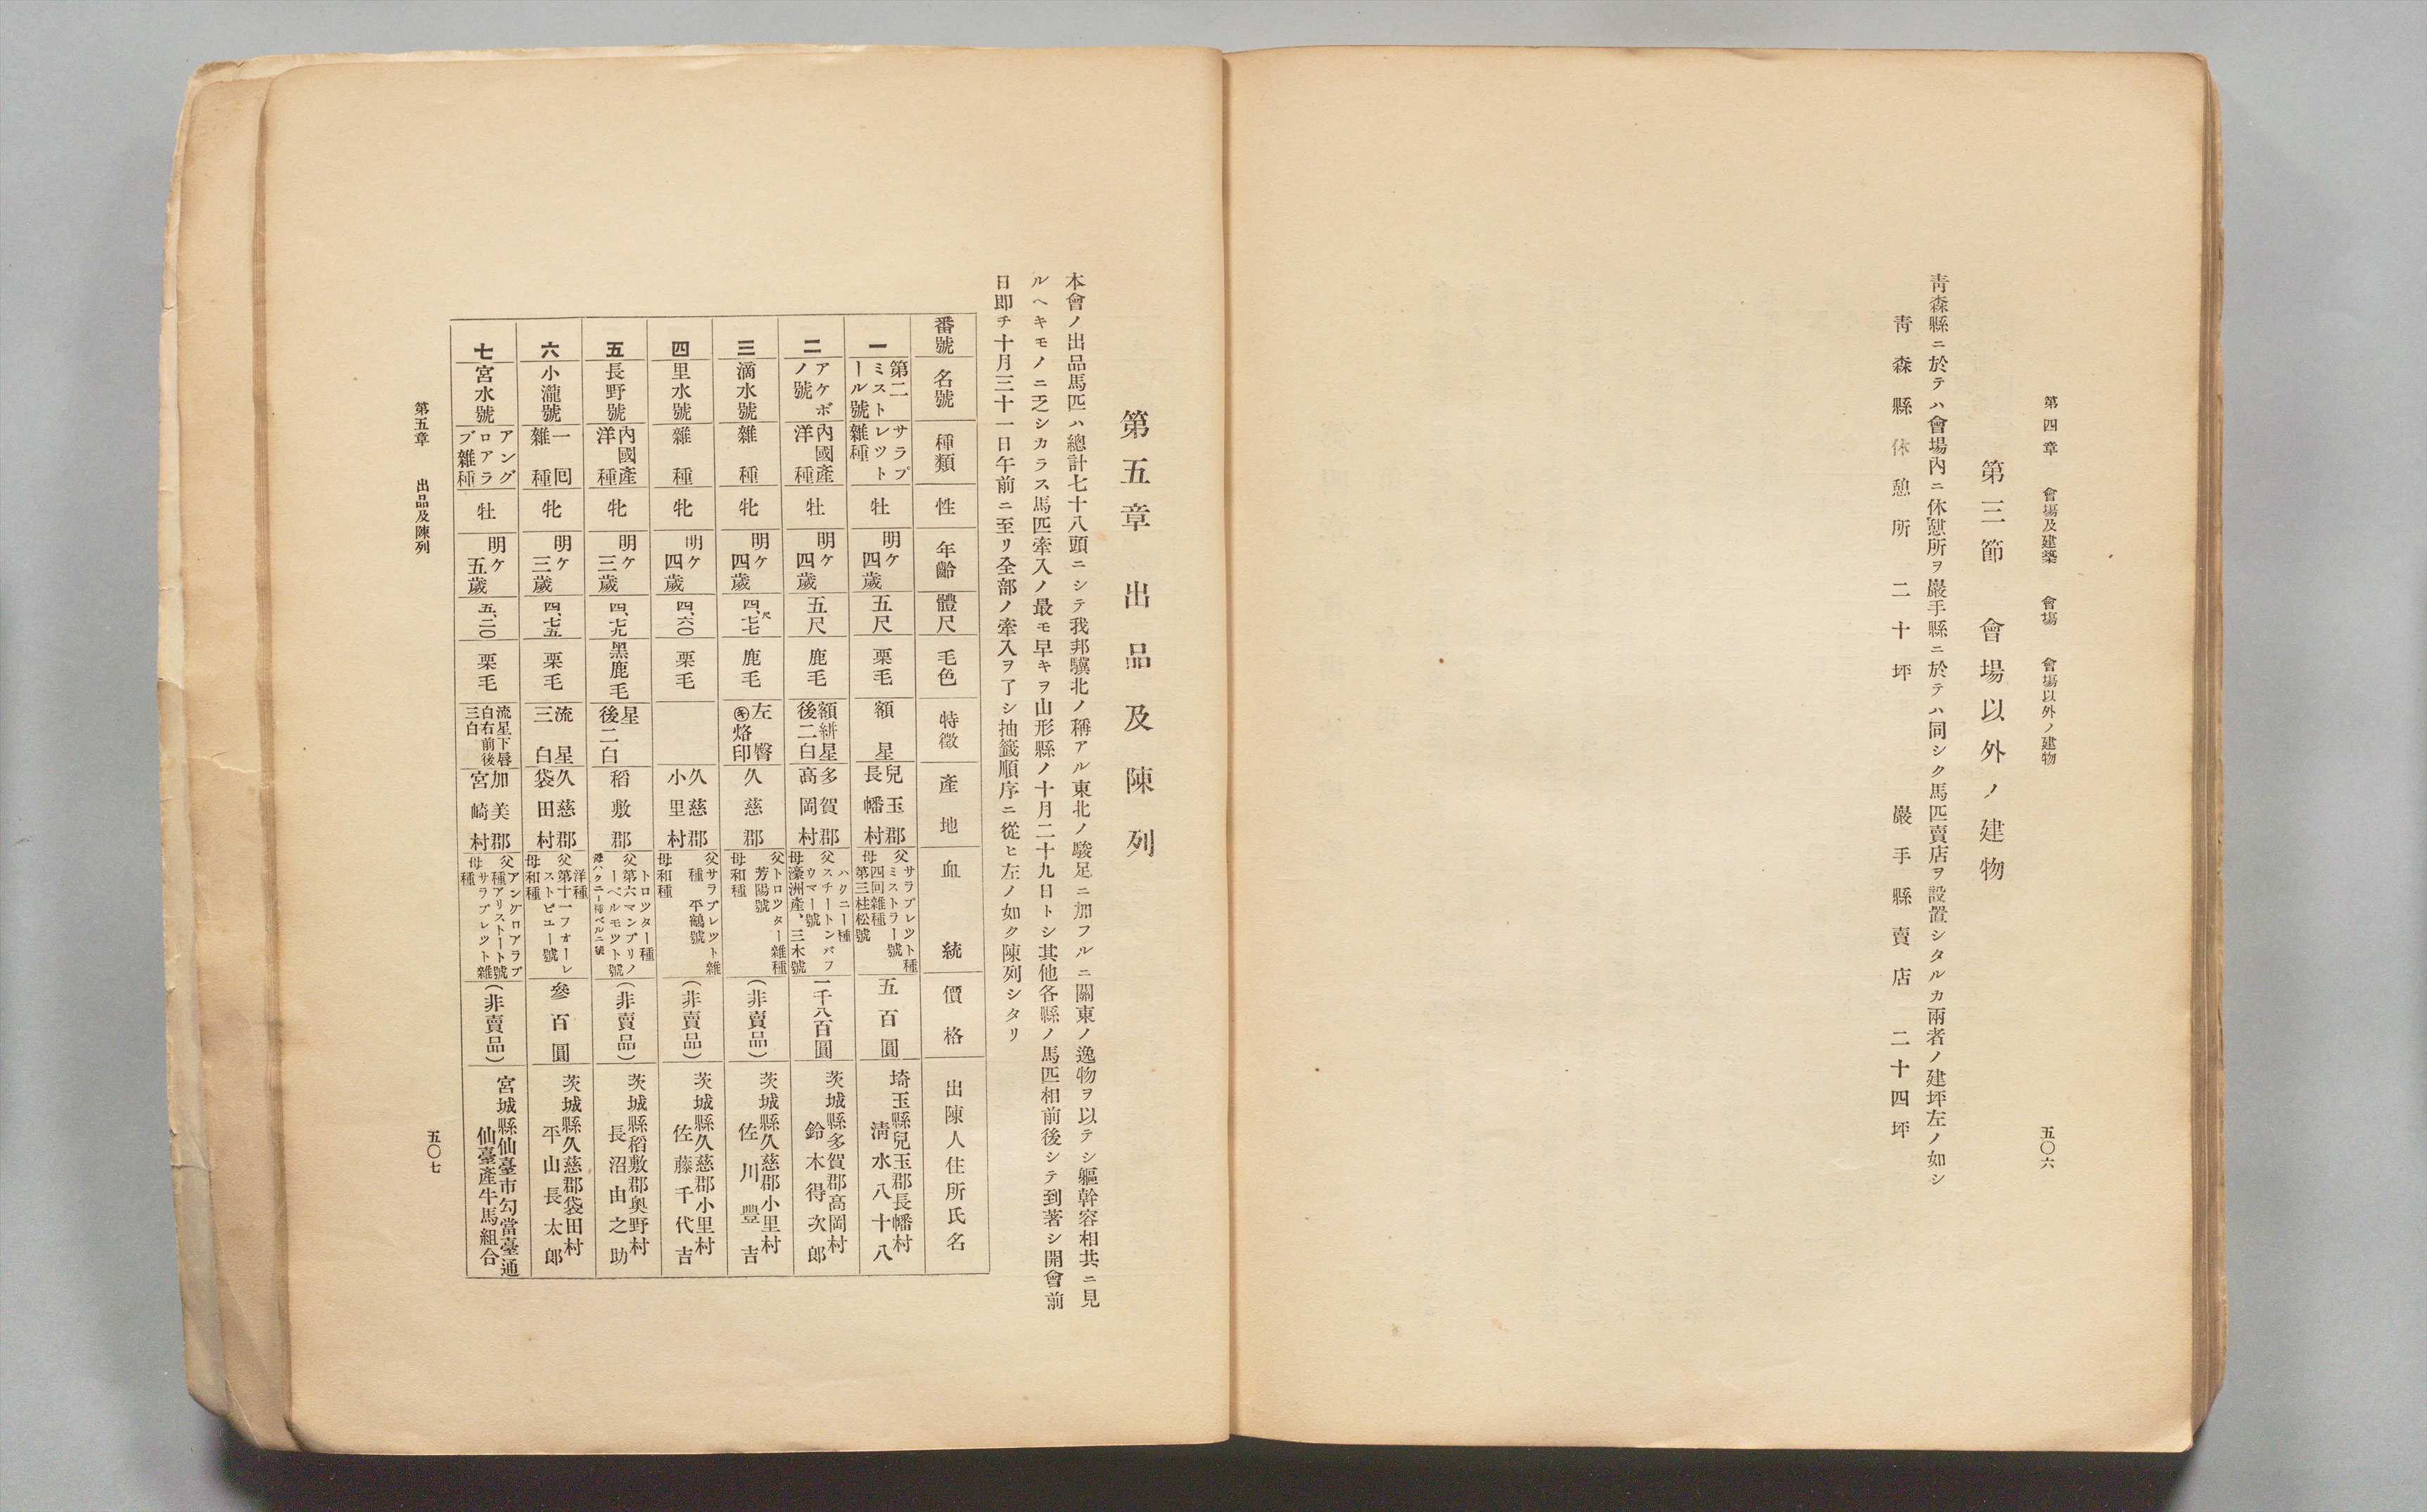 第四章　會場及建築　會場　會場以外ノ建物
五〇六
第三節　會場以外ノ建物
靑森縣ニ於テハ會場內ニ休憩所ヲ巖手縣ニ於テハ同シク馬匹賣店ヲ設置シタルカ兩者ノ建坪左ノ如シ
靑森縣休憩所　二十坪　巖手縣賣店　二十四坪
第五章　出品及陳列
本會ノ出品馬匹ハ總計七十八頭ニシテ我邦驥北ノ稱アル東北ノ駿足ニ加フルニ關東ノ逸物ヲ以テシ軀幹容相共ニ見
ルヘキモノニ乏シカラス馬匹牽入ノ最モ早キヲ山形縣ノ十月二十九日トシ其他各縣ノ馬匹相前後シテ到著シ開會前
日卽チ十月三十一日午前ニ至リ全部ノ牽入ヲ了シ抽籤順序ニ從ヒ左ノ如ク陳列シタリ
番號　名號　種類　性　年齡　體尺　毛色　特徵　產地　血統　價格　出陳人住所氏名
一　第二ミストール號　サラブレツト雜種　牡　明ケ四歲　五尺　栗毛　額星　兒玉郡長幡村　父サラブレツト種ミストラー號　母四回雜種第三桂松號　五百圓　埼玉縣兒玉郡長幡村　淸水八十八
二　アケボノ號　內國產洋種　牡　明ケ四歲　五尺　鹿毛　額絣星後二白　多賀郡高岡村　父ハクニー種スチートンバフウマー號　母濠洲產、三木號　一千八百圓　茨城縣多賀郡高岡村　鈴木得次郎
三　滴水號　雜種　牝　明ケ四歲　四、七七尺　鹿毛　左臀㋖烙印　久慈郡　父トロツター雜種芳陽號　母和種　（非賣品）　茨城縣久慈郡小里村　佐川豐吉
四　里水號　雜種　牝　明ケ四歲　四、六〇　栗毛　久慈郡小里村　父サラブレツト雜種　平鶴號　母和種　（非賣品）　茨城縣久慈郡小里村　佐藤千代吉
五　長野號　內國產洋種　牝　明ケ三歲　四、七九　黑鹿毛　星後二白　稻敷郡　父トロツター種第六マンブリノーベルモツト號　母ハクニー種ベルニ號　（非賣品）　茨城縣稻敷郡奧野村　長沼由之助
六　小瀧號　一回雜種　牝　明ケ三歲　四、七五　栗毛　流星三白　久慈郡袋田村　父洋種第十一フオーレストビユー號　母和種　參百圓　茨城縣久慈郡袋田村　平山長太郎
七　宮水號　アングロアラブ雜種　牡　明ケ五歲　五、二〇　栗毛　流星下唇白右前後三白　加美郡宮崎村　父アングロアラブ種アリストート號　母サラブレツト雜種　（非賣品）　宮城縣仙臺市勾當臺通　仙臺產牛馬組合
第五章　出品及陳列
五〇七